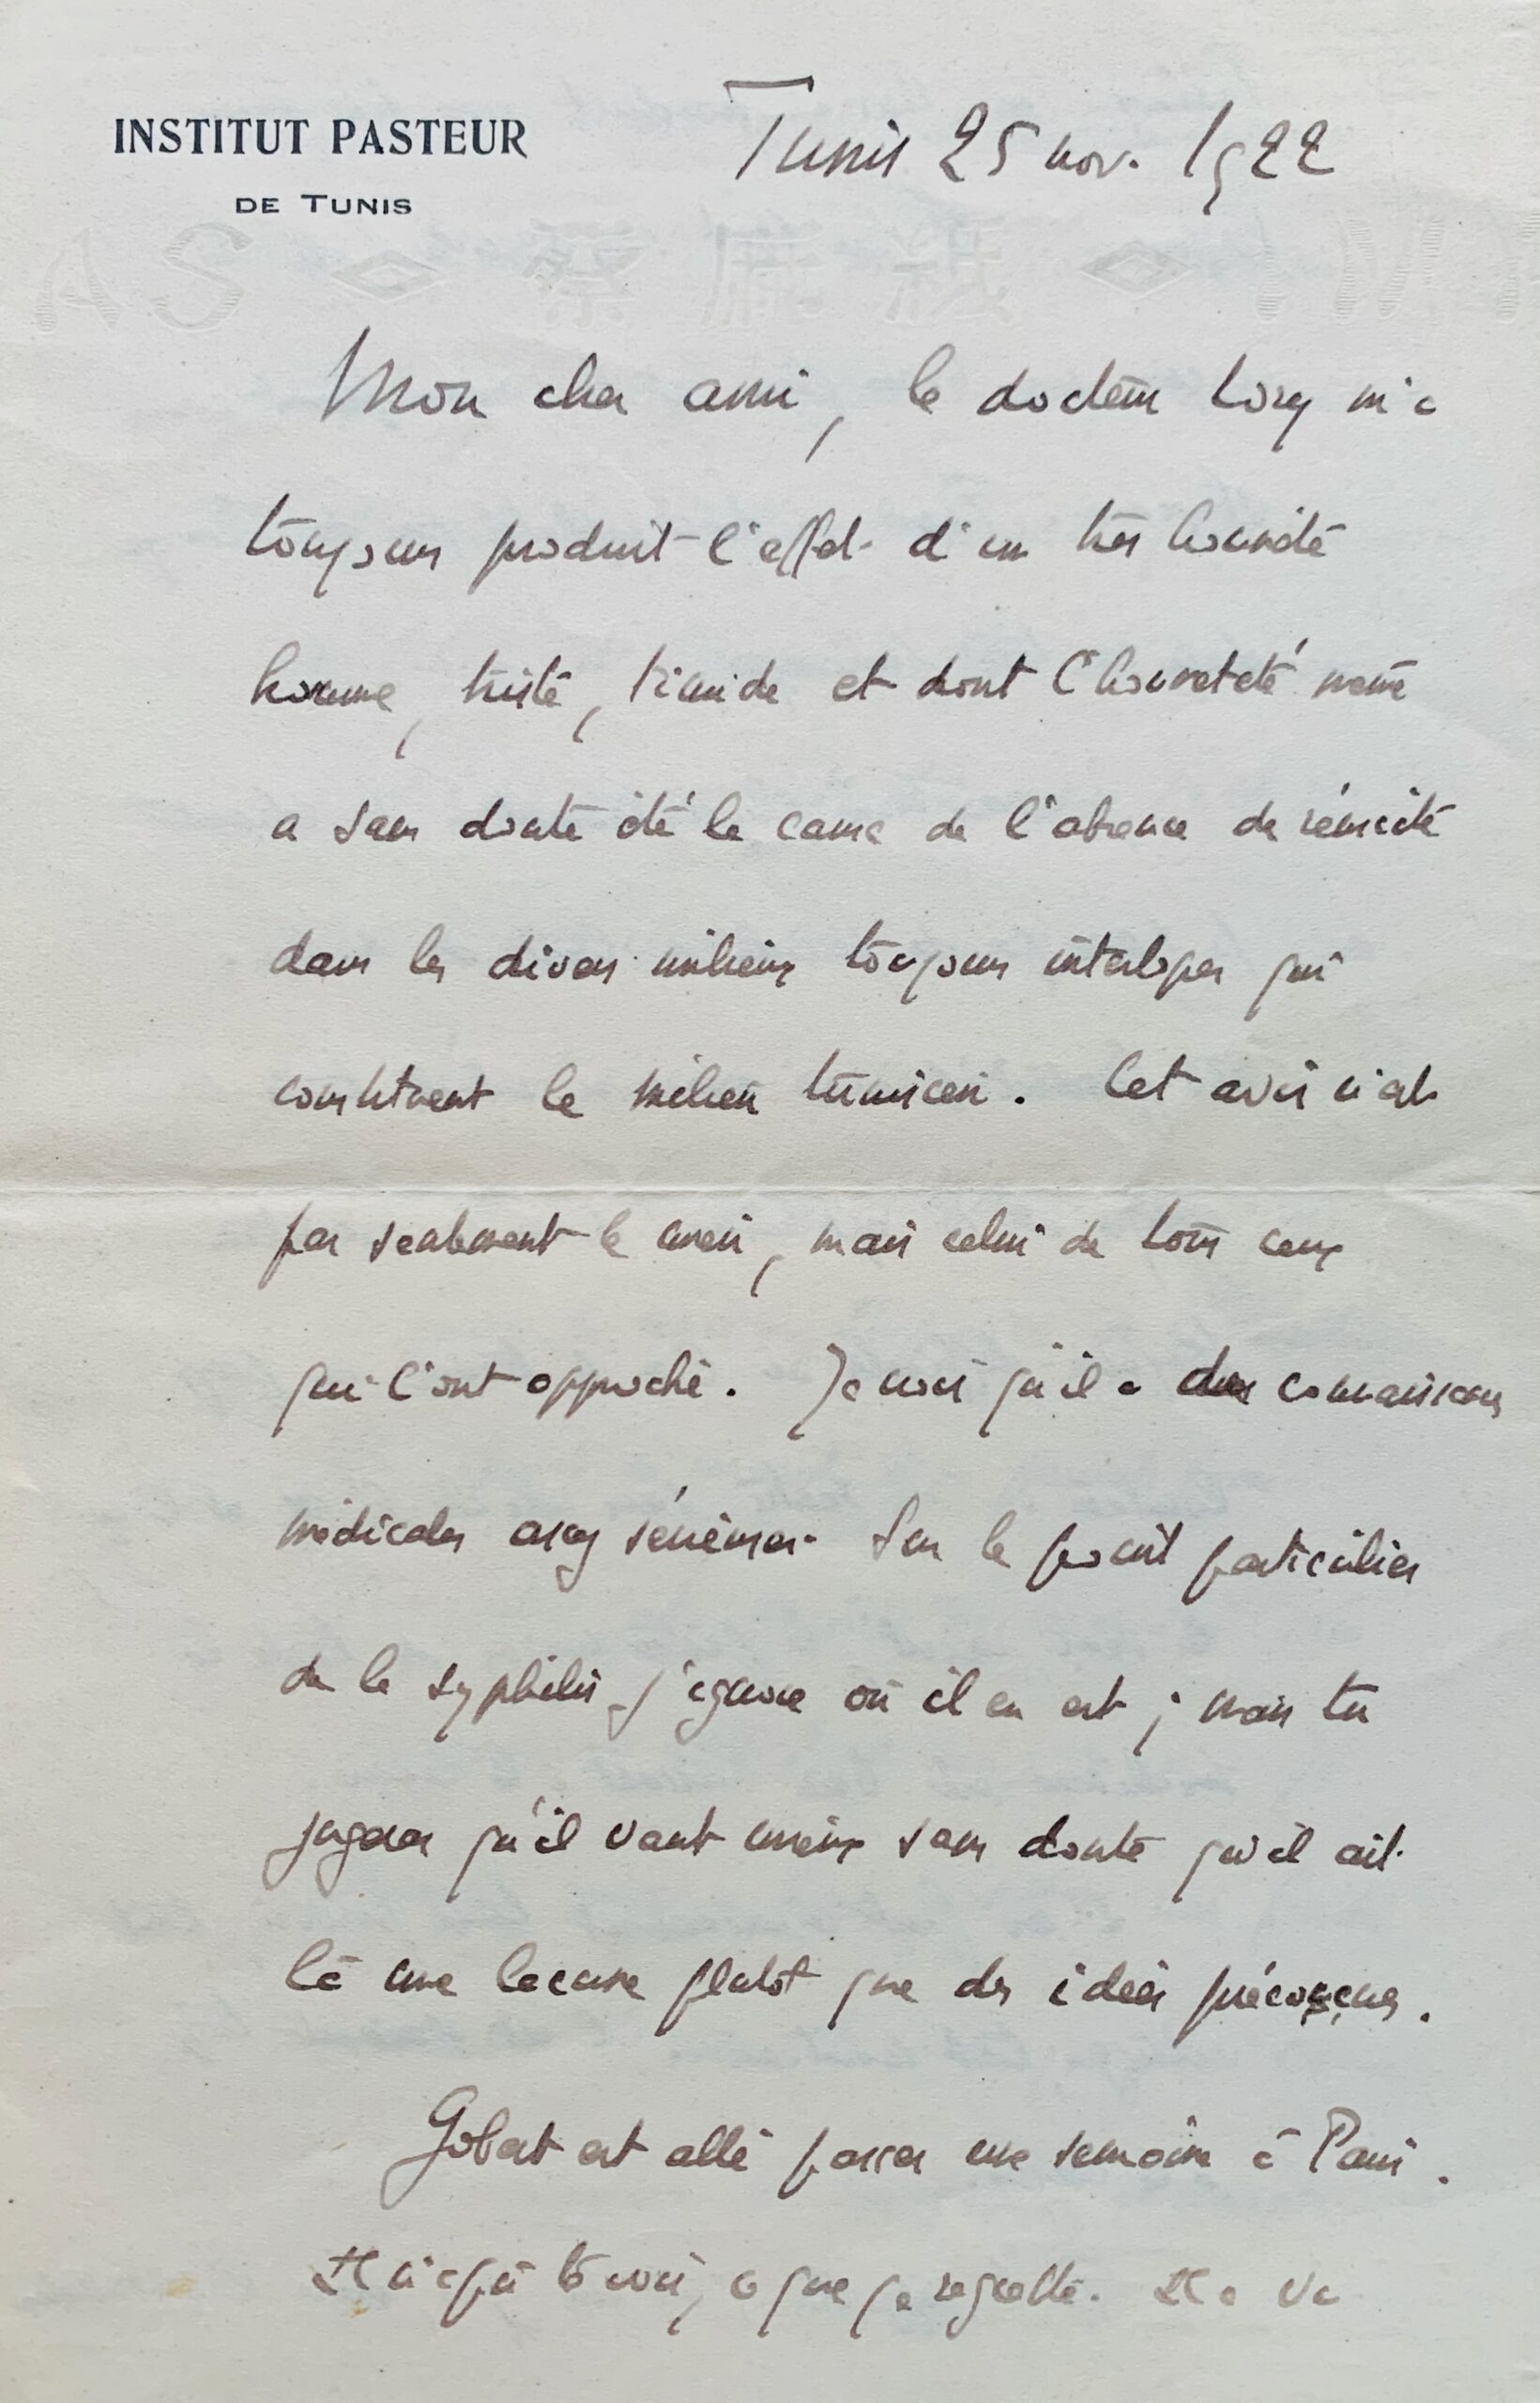 INSTITUT PASTEUR
DE TUNIS
Tunis 25 nov. 1922
AS 紙 麻 祭
Mon cher ami, le docteur Lory m'a
toujours produit l'effet d'un très honnête
homme, triste, timide et dont l'honnêteté même
a sans doute été la cause de l'absence de réussite
dans les divers milieux toujours interlopes qui
constituent le milieu tunisien. Cet avis n'est
pas seulement le mien, mais celui de tous ceux
qui l'ont approché. Je crois qu'il a des connaissances
médicales assez sérieuses. Sur le point particulier
de la syphilis j'ignore où il en est ; mais tu
jugeras qu'il vaut mieux sans doute qu'il ait
là une lacune plutôt que des idées préconçues.
Gobert est allé passer une semaine à Paris.
Il n'a pu te voir, ce que je regrette. Il a vu